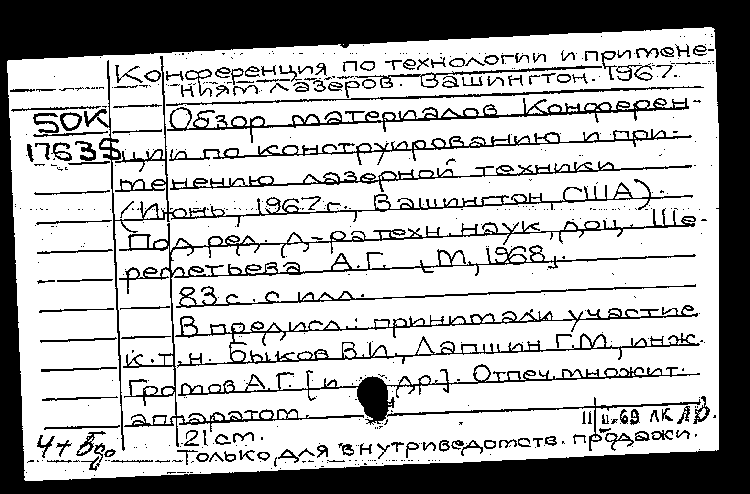 Конференция по технологии и примене-
ниям лазеров. Вашингтон. 1967.
50К
17635
Обзор материалов Конферен-
ции по конструированию и при-
менению лазерной техники
(Июнь, 1967 г., Вашингтон, США).
Под ред. д-ра техн. наук, доц. Ше-
реметьева А.Г. [М., 1968].
83 с. с илл.
В предисл.: принимали участие
к.т.н. Быков В.И., Лапшин Г.М., инж.
Громов А.Г. [и др.]. Отпеч. множит.
аппаратом.
21 см.
II-69 ЛК
Только для внутриведомств. продажи.
4+